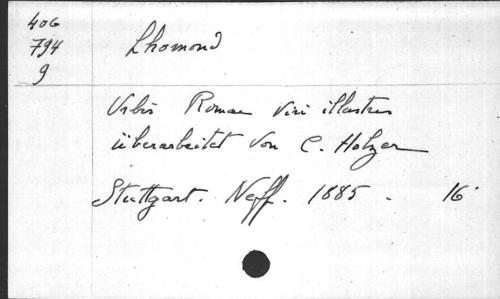 406
794
9
Lhomond
Urbis Romae viri illustres
überarbeitet von C. Holzer
Stuttgart. Neff. 1885. 16°